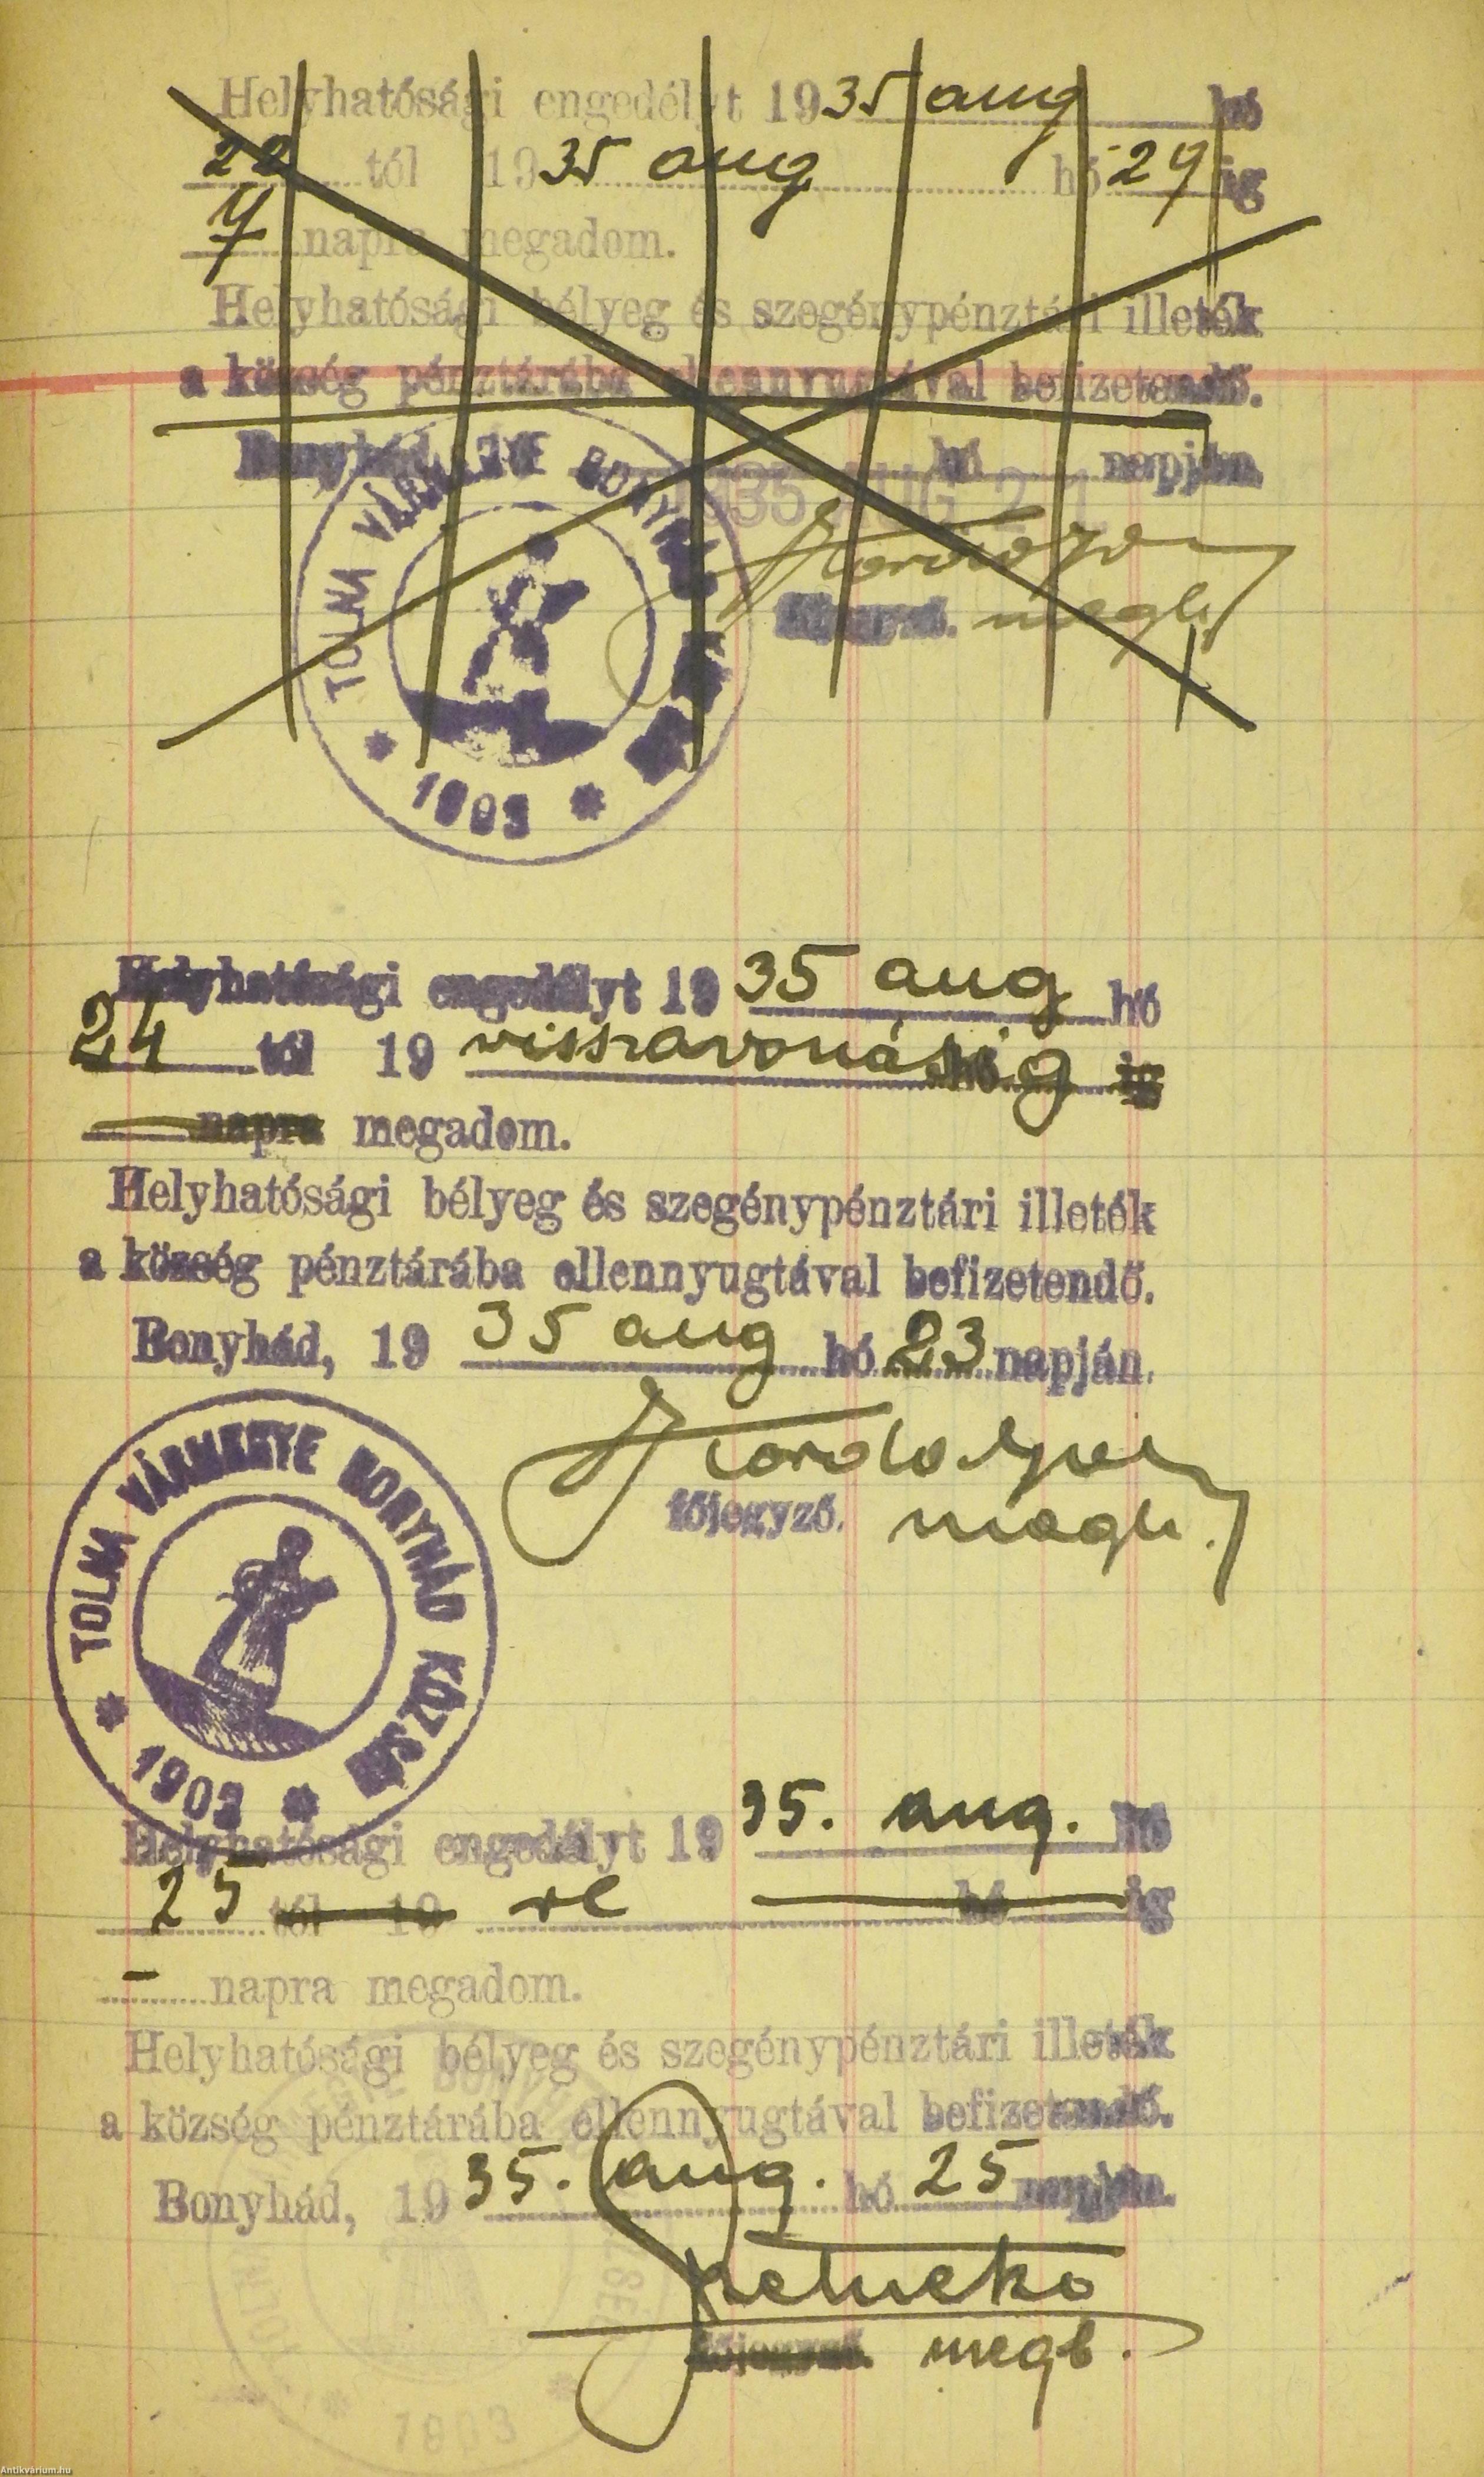 Helyhatósági engedélyt 1935 aug hó
22 tól 1935 aug hó 29 ig
7 napra megadom.
Helyhatósági bélyeg és szegénypénztári illeték
a község pénztárába ellennyugtával befizetendő.
Bonyhád, 19 hó napján
1935 AUG 21
főjegyző. megb.
TOLNA VÁRMEGYE BONYHÁD KÖZSÉG
* 1903 *
Helyhatósági engedélyt 1935 aug hó
24 tól 19 visszavonásig hó ig
napra megadom.
Helyhatósági bélyeg és szegénypénztári illeték
a község pénztárába ellennyugtával befizetendő.
Bonyhád, 1935 aug hó 23 napján.
főjegyző. megb.
TOLNA VÁRMEGYE BONYHÁD KÖZSÉG
* 1903 *
Helyhatósági engedélyt 1935. aug. hó
25 tól 19 re hó ig
- napra megadom.
Helyhatósági bélyeg és szegénypénztári illeték
a község pénztárába ellennyugtával befizetendő.
Bonyhád, 1935. aug. hó 25 napján.
főjegyző. megb.
1903
Antikvárium.hu